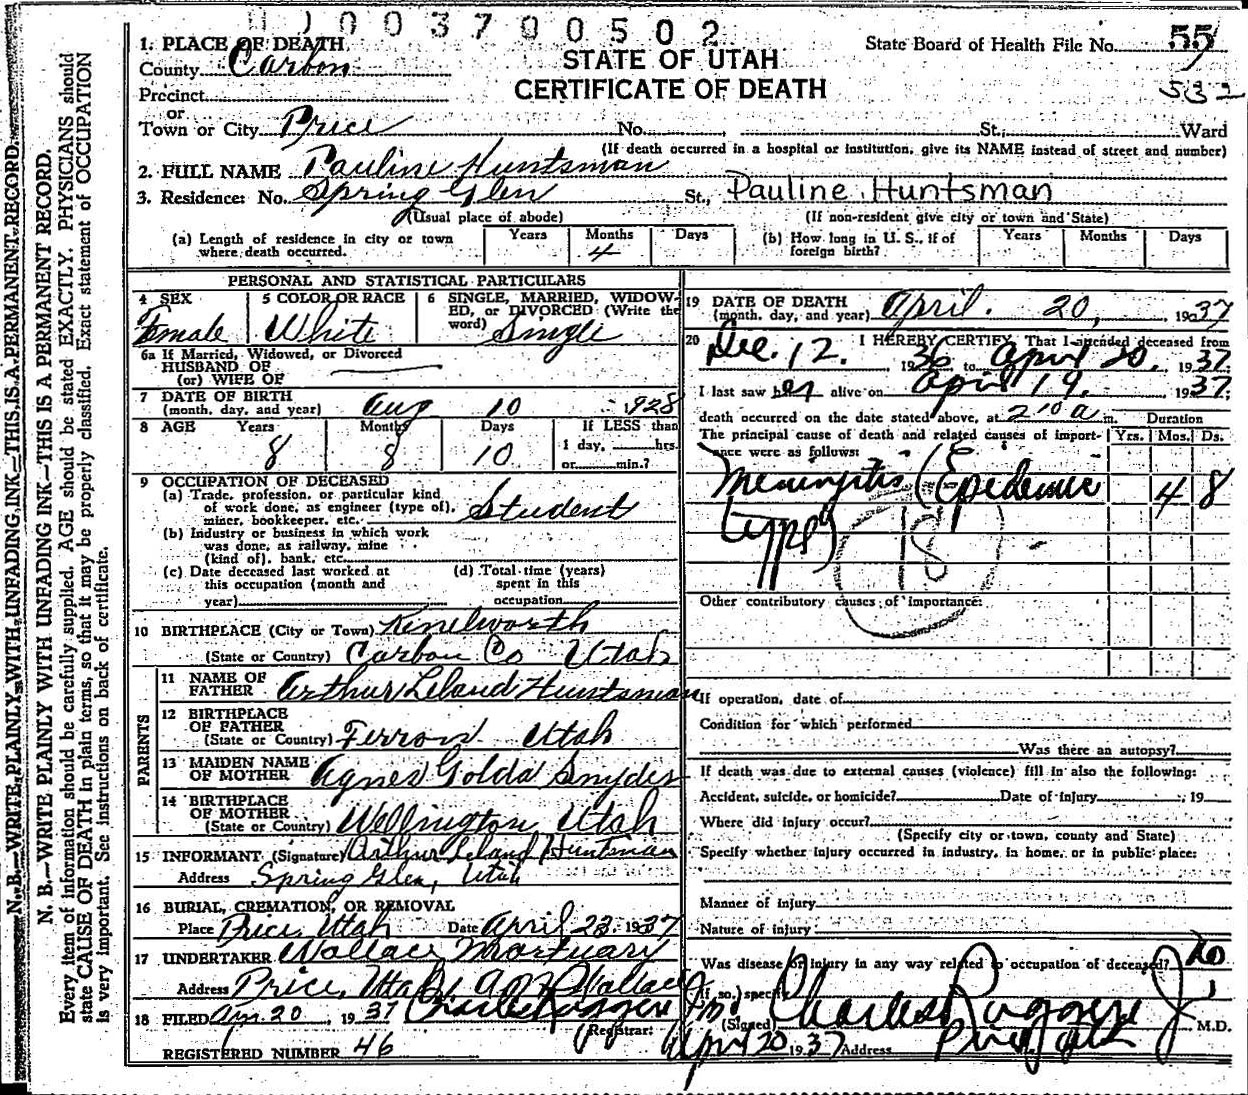 003700502
1. PLACE OF DEATH
County Carbon
STATE OF UTAH
CERTIFICATE OF DEATH
State Board of Health File No. 55
532
Precinct
or
Town or City Price No. St., Ward
(If death occurred in a hospital or institution, give its NAME instead of street and number)
2. FULL NAME Pauline Huntsman
3. Residence: No. Spring Glen St., Pauline Huntsman
(Usual place of abode) (If non-resident give city or town and State)
(a) Length of residence in city or town where death occurred. Years Months 4 Days
(b) How long in U. S., if of foreign birth? Years Months Days
PERSONAL AND STATISTICAL PARTICULARS
4 SEX Female
5 COLOR OR RACE White
6 SINGLE, MARRIED, WIDOWED, or DIVORCED (Write the word) Single
6a If Married, Widowed, or Divorced
HUSBAND OF
(or) WIFE OF
7 DATE OF BIRTH
(month, day, and year) Aug 10 1928
8 AGE Years 8 Months 8 Days 10 If LESS than 1 day, hrs. or min.?
9 OCCUPATION OF DECEASED
(a) Trade, profession, or particular kind
of work done, as engineer (type of), Student
miner, bookkeeper, etc.
(b) Industry or business in which work
was done, as railway, mine
(kind of), bank, etc.
(c) Date deceased last worked at
this occupation (month and
year)
(d) Total time (years)
spent in this
occupation
10 BIRTHPLACE (City or Town) Kenelworth
(State or Country) Carbon Co Utah
PARENTS
11 NAME OF
FATHER Arthur Leland Huntsman
12 BIRTHPLACE
OF FATHER
(State or Country) Ferron Utah
13 MAIDEN NAME
OF MOTHER Agnes Golda Snyder
14 BIRTHPLACE
OF MOTHER
(State or Country) Wellington Utah
15 INFORMANT (Signature) Arthur Leland Huntsman
Address Spring Glen, Utah
16 BURIAL, CREMATION, OR REMOVAL
Place Price, Utah Date April 23, 1937
17 UNDERTAKER Wallace Mortuary
Address Price, Utah Wallace
18 FILED Apr. 20, 1937 Charles Ruggeri
(Registrar:
REGISTERED NUMBER 46
19 DATE OF DEATH
(month, day, and year) April. 20, 1937
20 I HEREBY CERTIFY, That I attended deceased from
Dec. 12. 1936 to April 20, 1937.
I last saw her alive on April 19, 1937;
death occurred on the date stated above, at 2:10 a m.
The principal cause of death and related causes of importance were as follows:
Duration
Yrs. Mos. Ds.
Meningitis (Epidemic 4 8
type)
18
Other contributory causes of importance:
If operation, date of
Condition for which performed
Was there an autopsy?
If death was due to external causes (violence) fill in also the following:
Accident, suicide, or homicide? Date of injury , 19
Where did injury occur?
(Specify city or town, county and State)
Specify whether injury occurred in industry, in home, or in public place:
Manner of injury
Nature of injury
Was disease or injury in any way related to occupation of deceased? No
If so, specify
(Signed) Charles Ruggeri Jr, M.D.
April 20 1937 Address Price, Utah
N. B.—WRITE PLAINLY WITH UNFADING INK—THIS IS A PERMANENT RECORD.
N. B.—WRITE PLAINLY WITH UNFADING INK—THIS IS A PERMANENT RECORD.
Every item of information should be carefully supplied. AGE should be stated EXACTLY. PHYSICIANS should
state CAUSE OF DEATH in plain terms, so that it may be properly classified. Exact statement of OCCUPATION
is very important. See instructions on back of certificate.